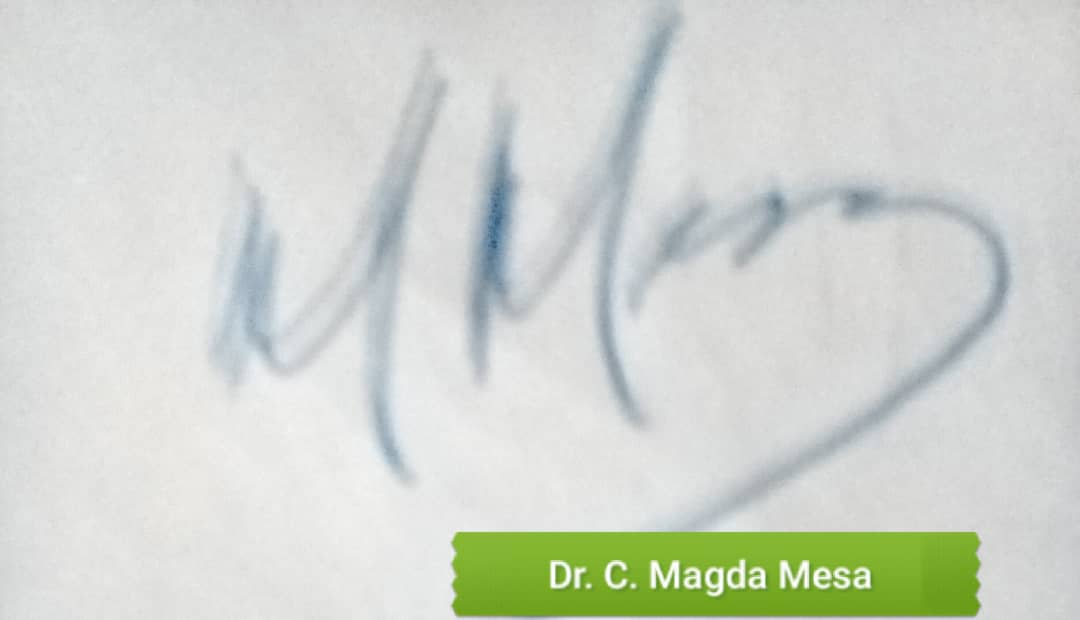 M Mesa
Dr. C. Magda Mesa